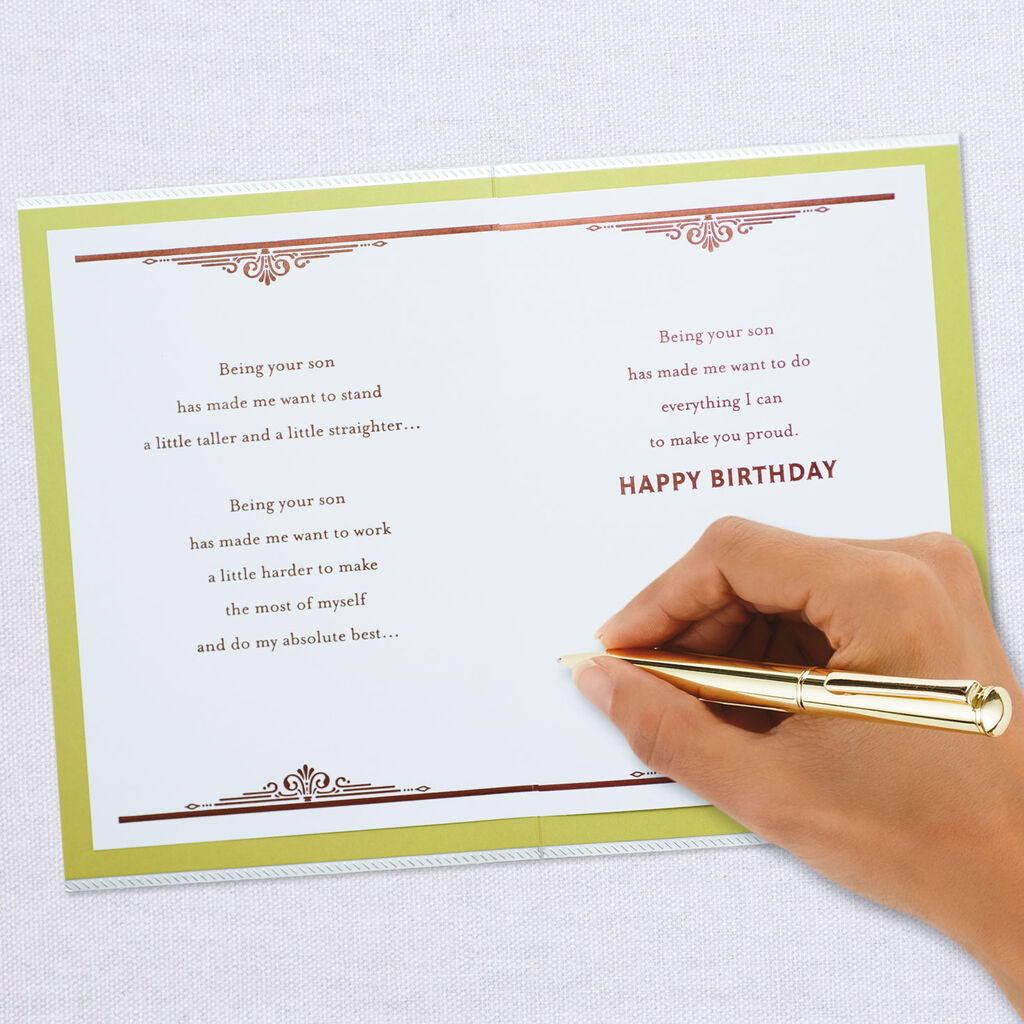 Being your son
has made me want to stand
a little taller and a little straighter...
Being your son
has made me want to work
a little harder to make
the most of myself
and do my absolute best...
Being your son
has made me want to do
everything I can
to make you proud.
HAPPY BIRTHDAY